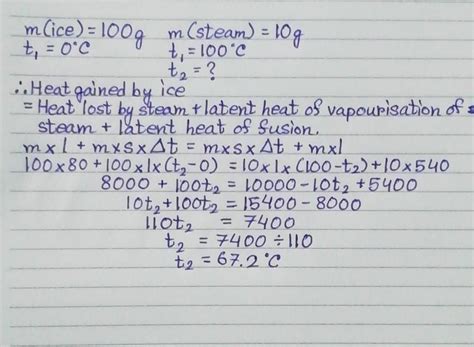 m(ice) = 100g m(steam) = 10g
t₁ = 0°C t₁ = 100°C
t₂ = ?
∴ Heat gained by ice
= Heat lost by steam + latent heat of vapourisation of
steam + latent heat of fusion.
m×l + m×s×Δt = m×s×Δt + m×l
100×80 + 100×1×(t₂-0) = 10×1×(100-t₂)+10×540
8000 + 100t₂ = 10000-10t₂ +5400
10t₂+100t₂ = 15400-8000
110t₂ = 7400
t₂ = 7400 ÷ 110
t₂ = 67.2°C